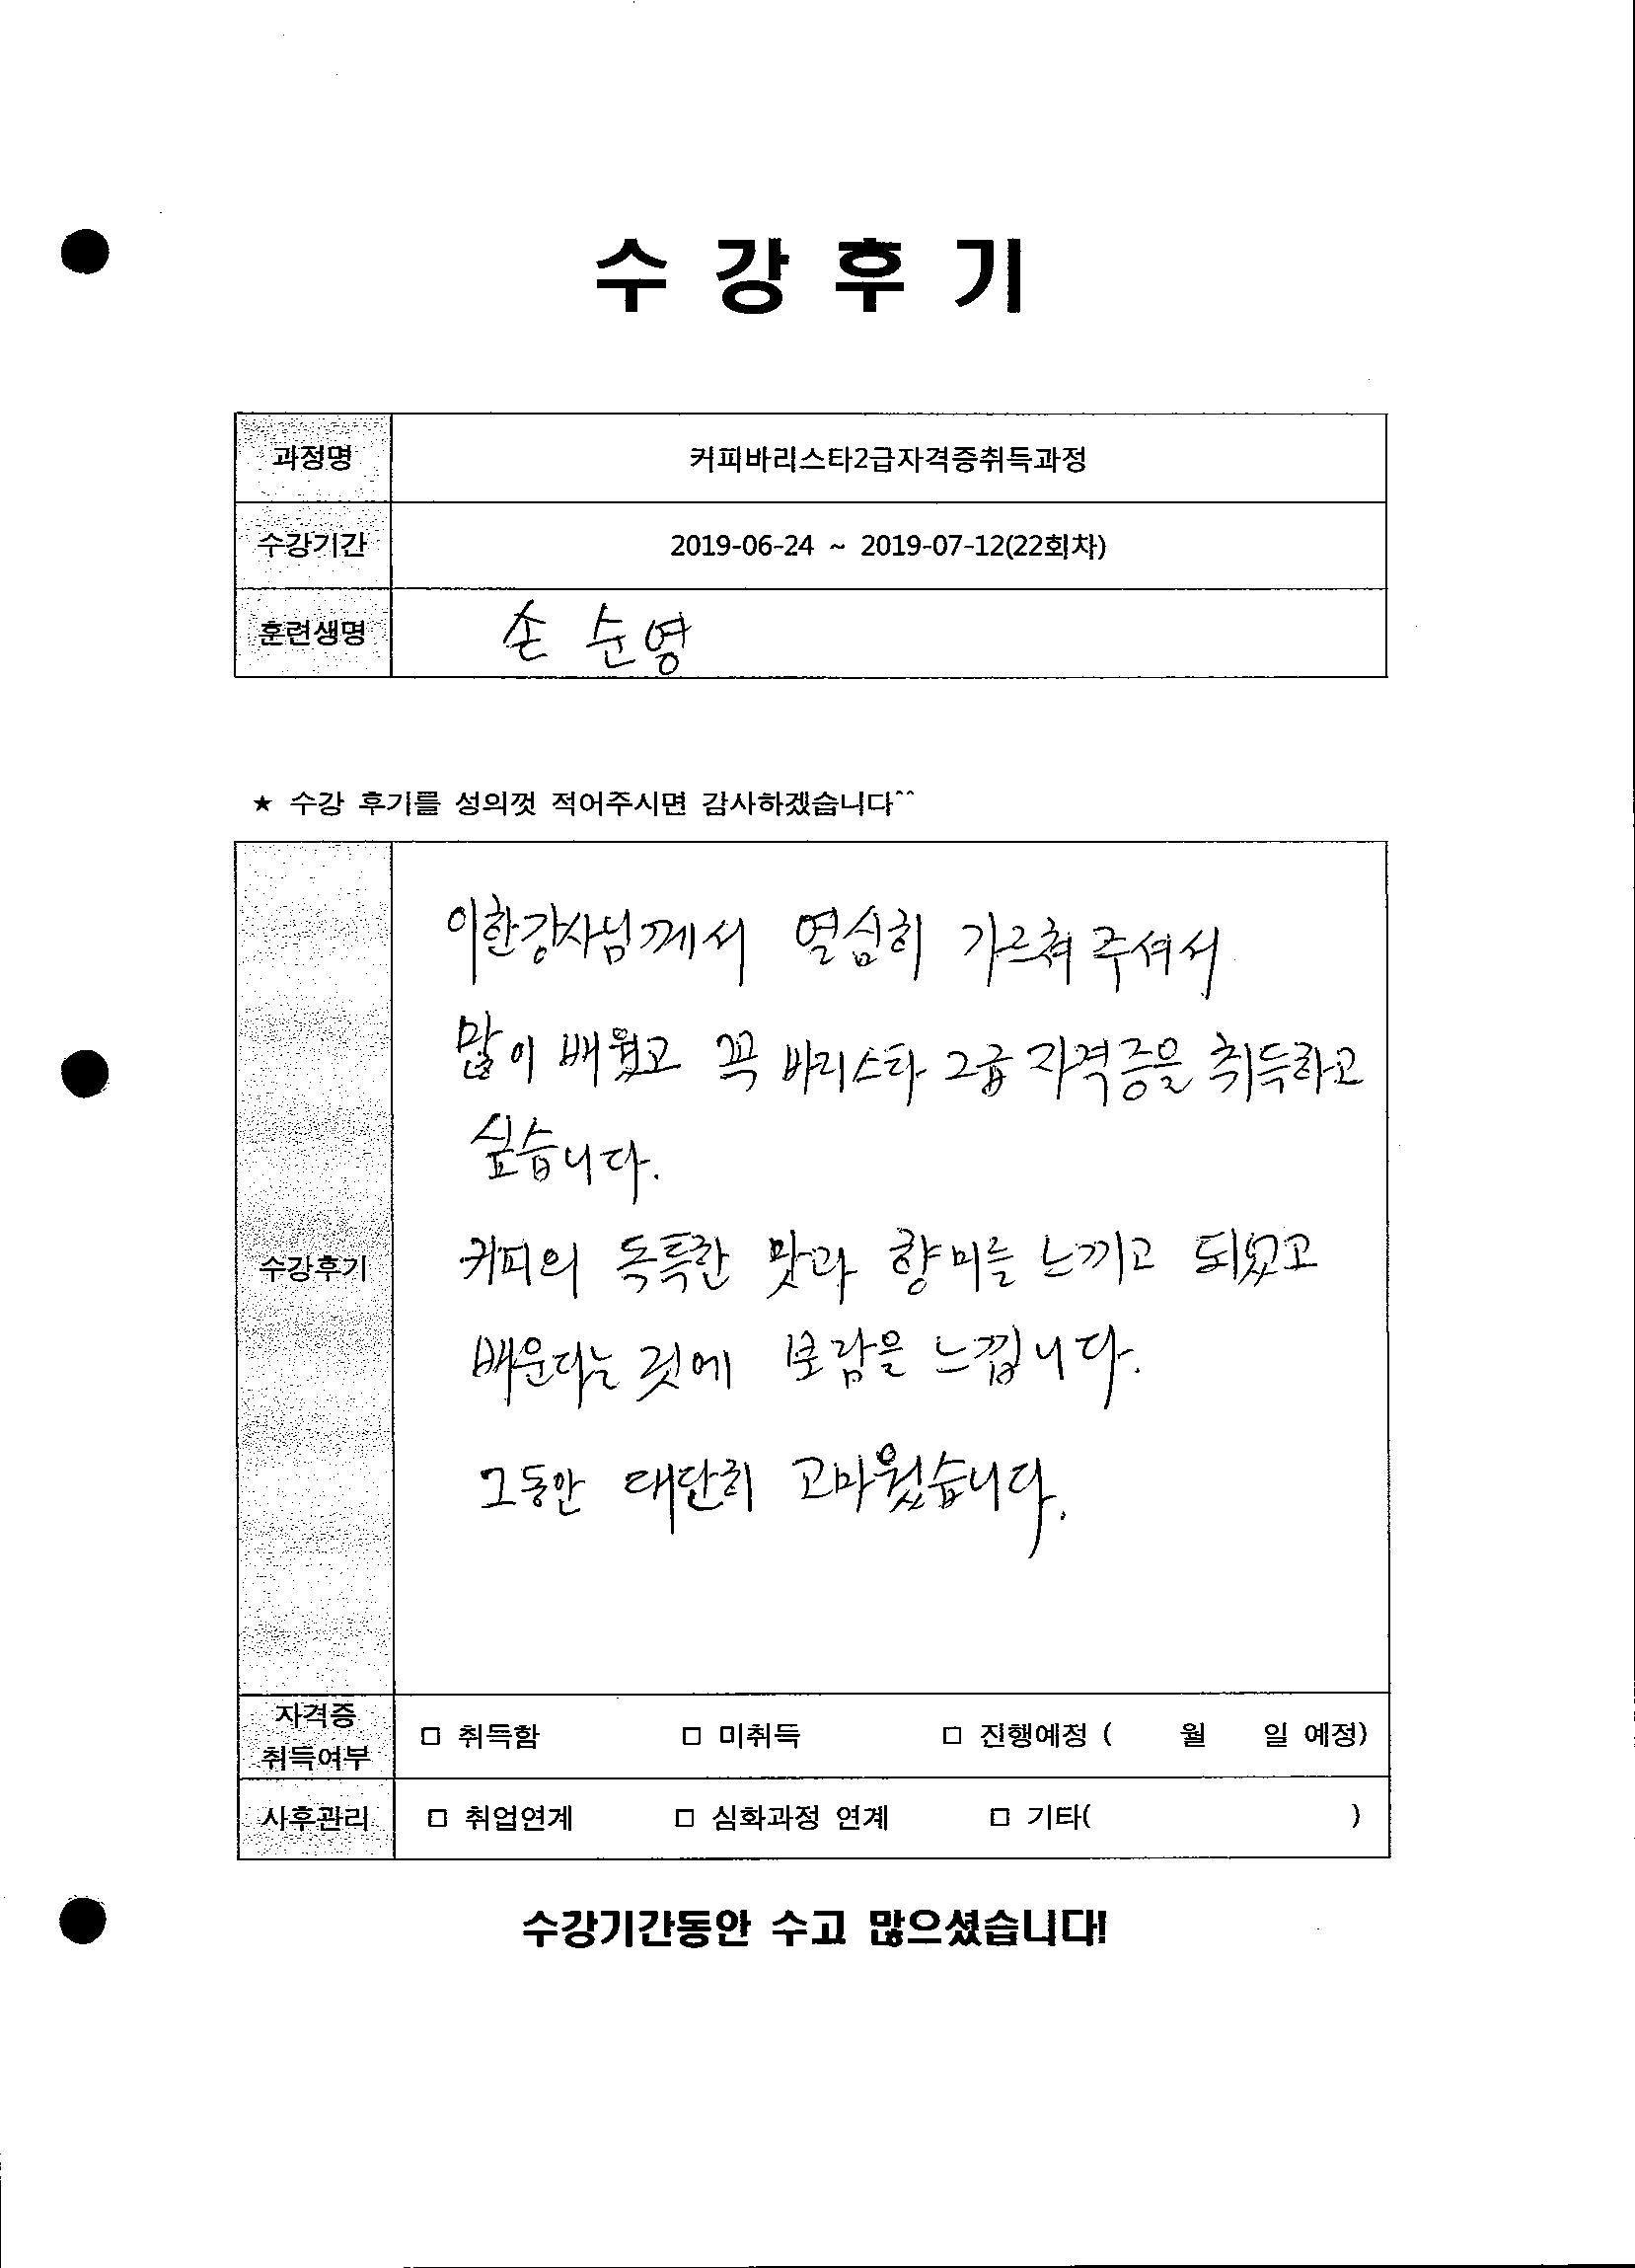 수 강 후 기
과정명 커피바리스타2급자격증취득과정
수강기간 2019-06-24 ~ 2019-07-12(22회차)
훈련생명 손 순영
★ 수강 후기를 성의껏 적어주시면 감사하겠습니다^^
이한강사님께서 열심히 가르쳐 주셔서
많이 배웠고 꼭 바리스타 2급 자격증을 취득하고
싶습니다.
수강후기
커피의 독특한 맛과 향미를 느끼고 되었고
배운다는 것에 보람을 느낍니다.
그동안 대단히 고마웠습니다.
자격증
취득여부
□ 취득함 □ 미취득 □ 진행예정 ( 월 일 예정)
사후관리 □ 취업연계 □ 심화과정 연계 □ 기타( )
수강기간동안 수고 많으셨습니다!